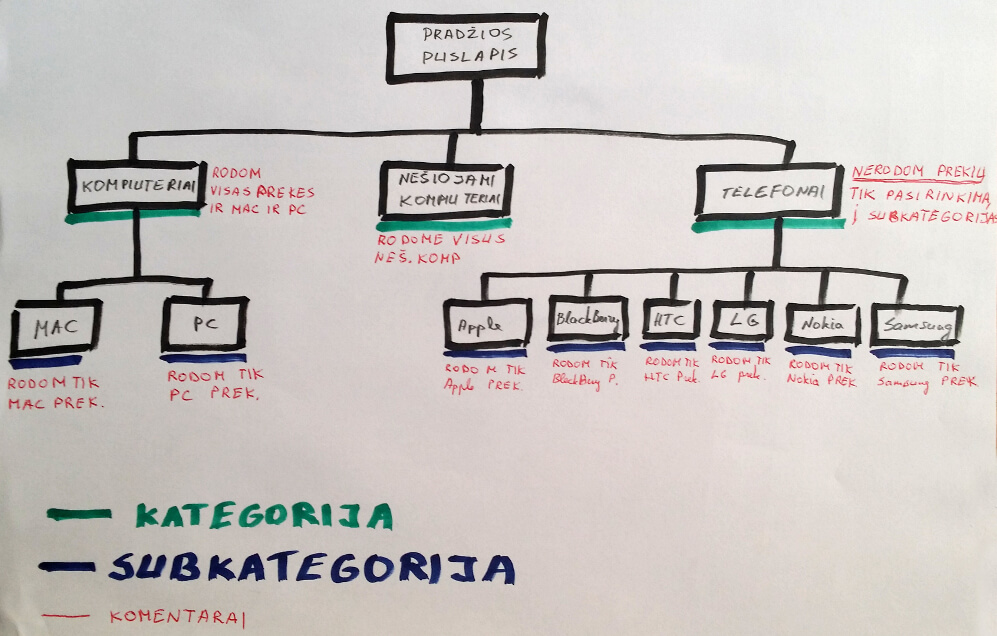 PRADŽIOS
PUSLAPIS
KOMPIUTERIAI
RODOM
VISAS PREKES
IR MAC IR PC
NEŠIOJAMI
KOMPIUTERIAI
RODOME VISUS
NEŠ. KOMP
TELEFONAI
NERODOM PREKIŲ
TIK PASIRINKIMĄ
Į SUBKATEGORIJAS
MAC
RODOM TIK
MAC PREK.
PC
RODOM TIK
PC PREK.
Apple
RODOM TIK
Apple PREK.
BlackBerry
RODOM TIK
BlackBerry P.
HTC
RODOM TIK
HTC Prek.
LG
RODOM TIK
LG prek.
Nokia
RODOM TIK
Nokia PREK
Samsung
RODOM TIK
Samsung PREK
KATEGORIJA
SUBKATEGORIJA
KOMENTARAI